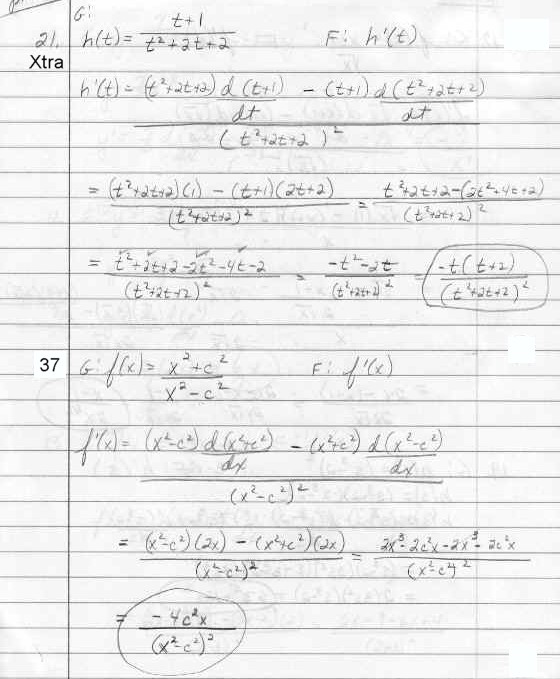 G:
21. h(t) = (t+1)/(t²+2t+2) F: h'(t)
Xtra
h'(t) = [(t²+2t+2) d(t+1)/dt - (t+1) d(t²+2t+2)/dt]/(t²+2t+2)²
= [(t²+2t+2)(1) - (t+1)(2t+2)]/(t²+2t+2)² = [t²+2t+2-(2t²+4t+2)]/(t²+2t+2)²
= [t²+2t+2-2t²-4t-2]/(t²+2t+2)² = [-t²-2t]/(t²+2t+2)² = [-t(t+2)]/(t²+2t+2)²
37 G: f(x) = (x²+c²)/(x²-c²) F: f'(x)
f'(x) = [(x²-c²) d(x²+c²)/dx - (x²+c²) d(x²-c²)/dx]/(x²-c²)²
= [(x²-c²)(2x) - (x²+c²)(2x)]/(x²-c²)² = [2x³-2c²x-2x³-2c²x]/(x²-c²)²
= [-4c²x]/(x²-c²)²